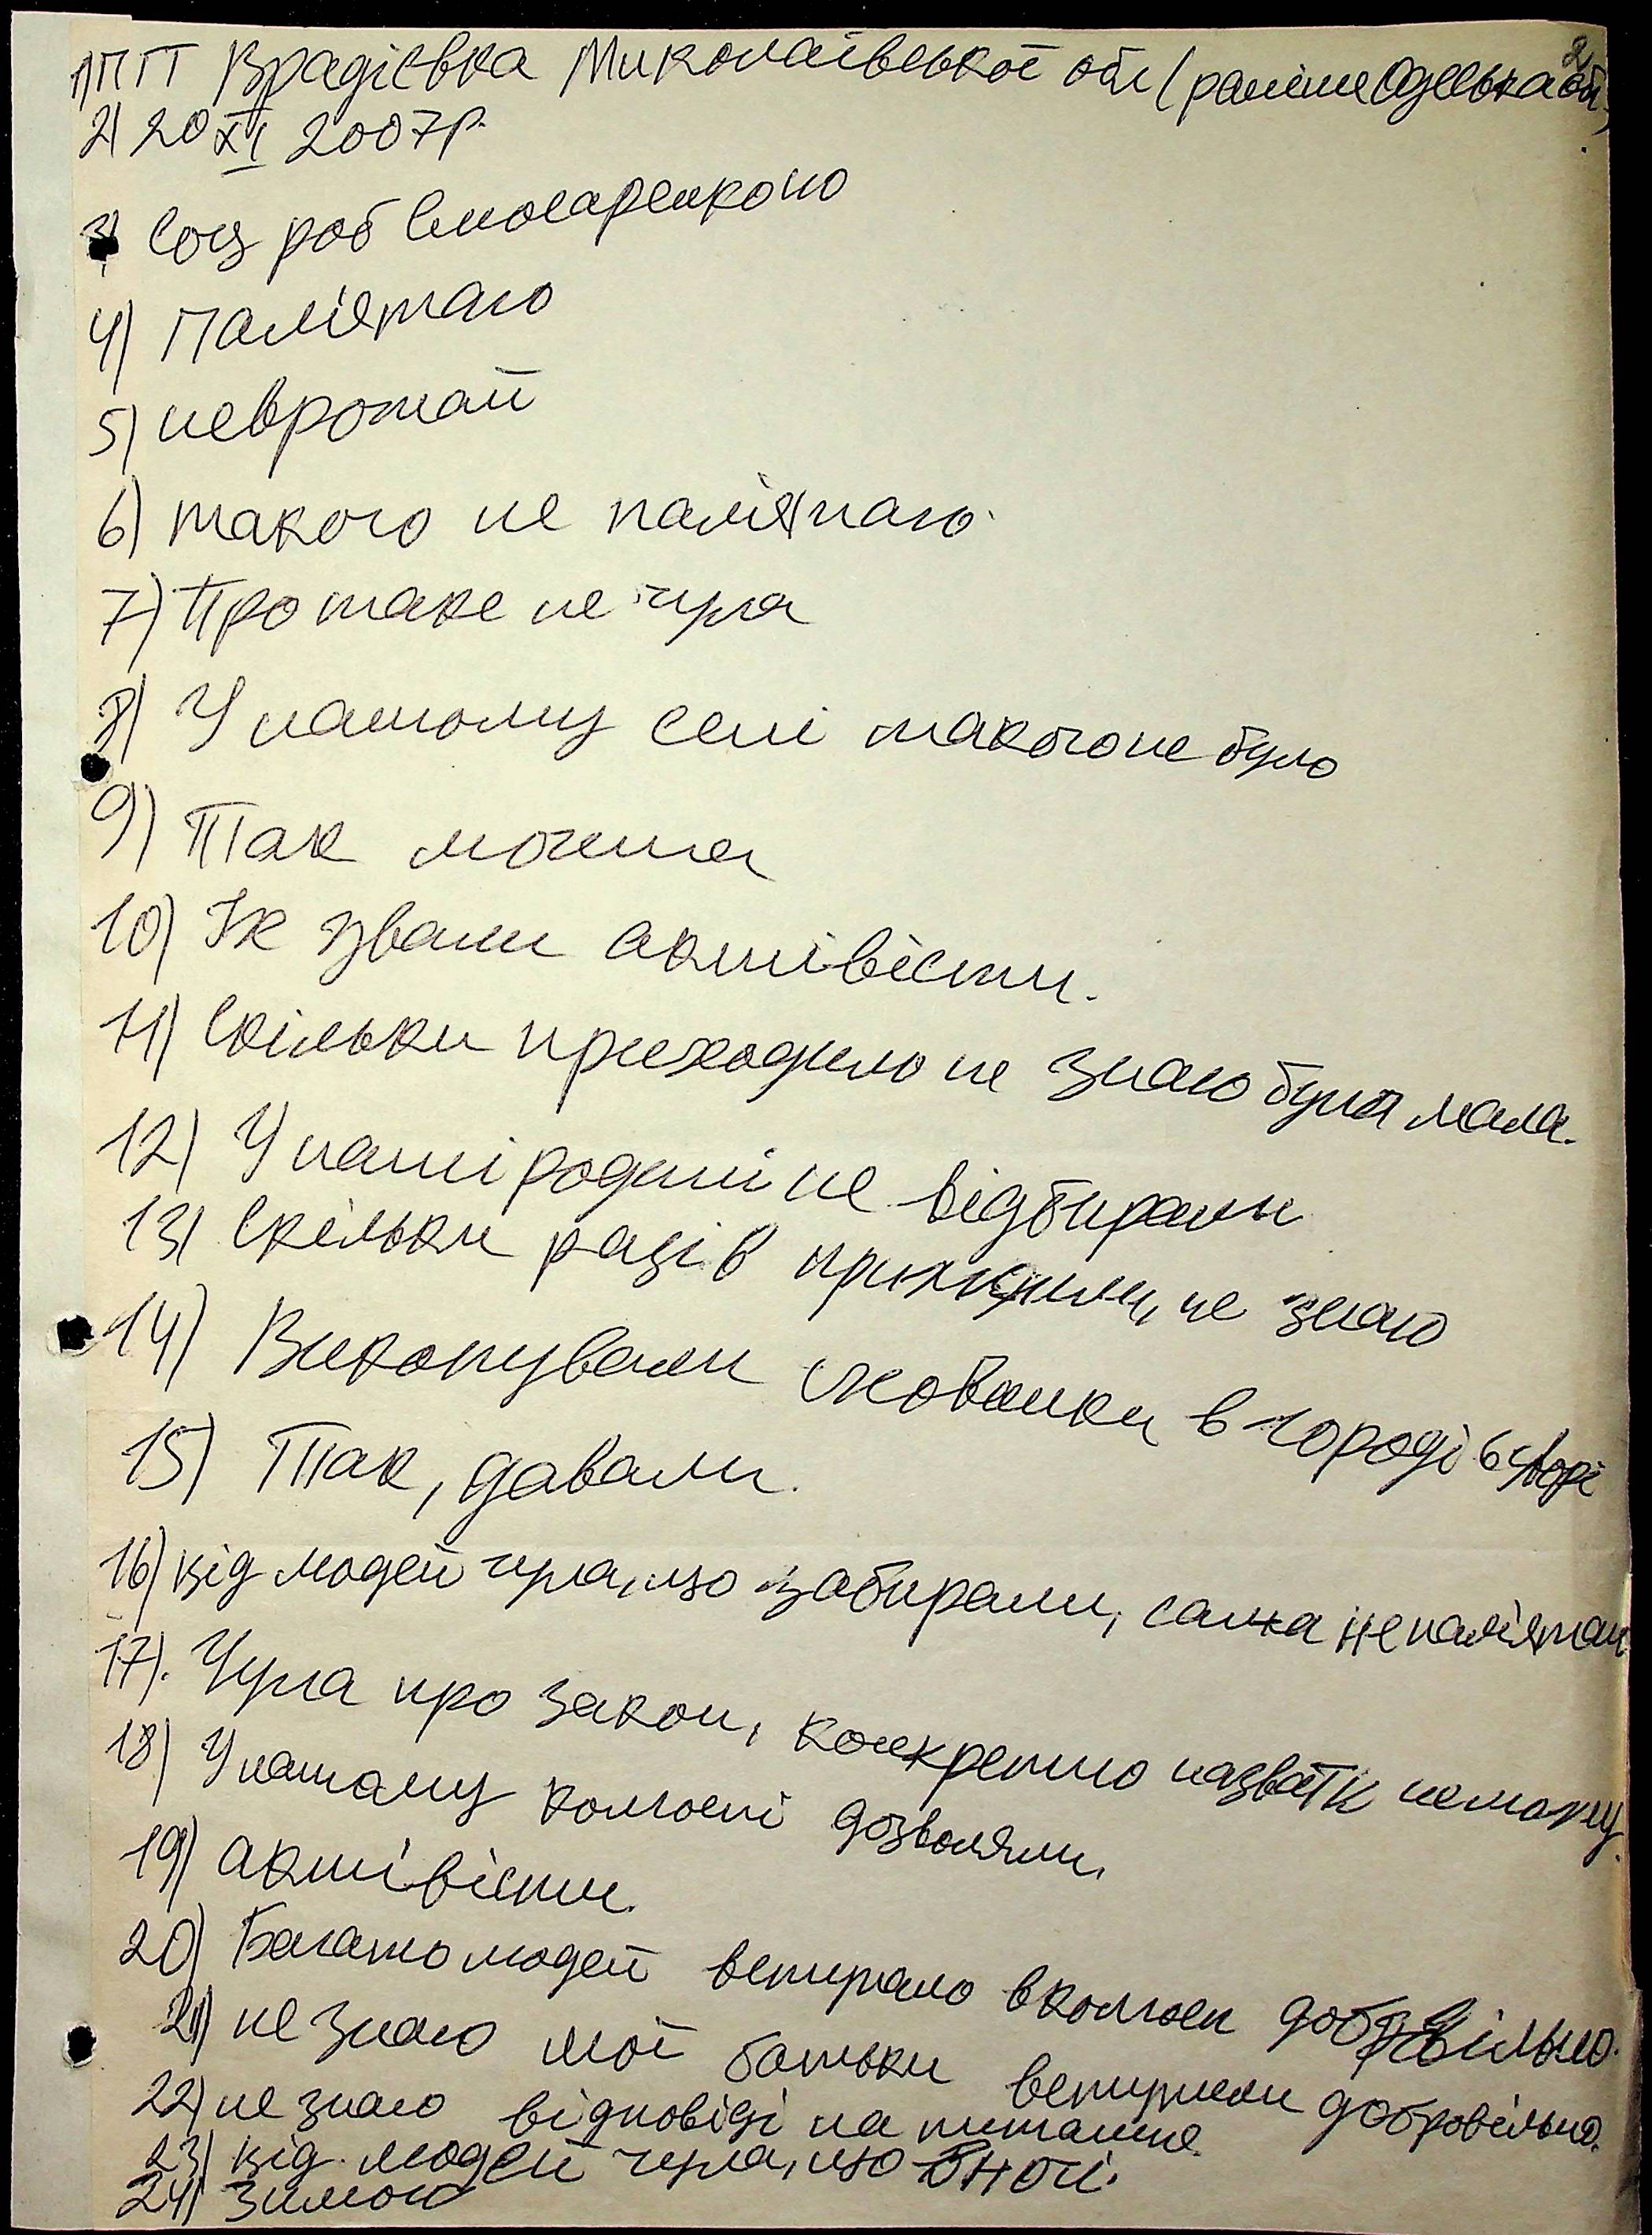 2
1) ПГТ Врадієвка Миколаївської обл (раніше Одеська обл.)
2) 20 XI 2007р.
3) Соц роб Слюсаренкою
4) Памʼятаю
5) неврожай
6) такого не памʼятаю
7) Про таке не чула
8) У нашому селі такого не було
9) Так могила
10) Їх звали активісти.
11) Скільки приходило не знаю була мала.
12) У нашій родині не відбирали
13) Скільки разів приходили, не знаю
14) Викопували схованки в городі в дворі
15) Так, давали.
16) від людей чула, що забирали, сама не памʼятаю
17). Чула про закон, конкретно назвати не можу.
18) У нашому колгоспі дозволяли.
19) активісти.
20) Багато людей вступало в колгосп добровільно.
21) не знаю мої батьки вступили добровільно.
22) не знаю відповіді на питання.
23) від людей чула, що вночі.
24) Зимою